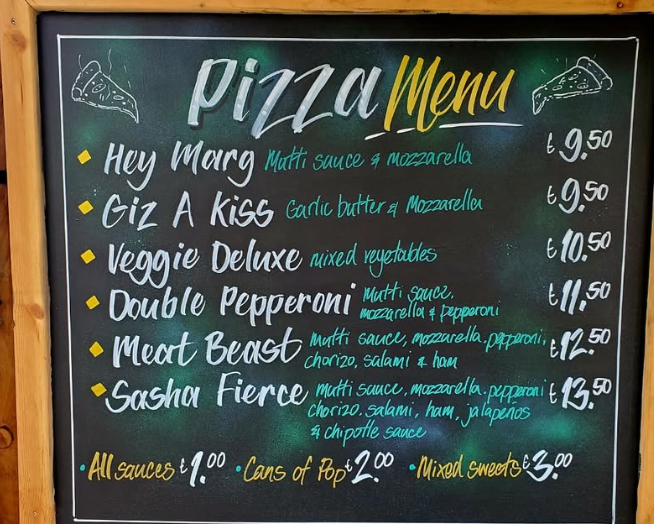 Pizza Menu
Hey Marg Mutti sauce & mozzarella £9.50
Giz A Kiss Garlic butter & Mozzarella £9.50
Veggie Deluxe mixed vegetables £10.50
Double Pepperoni Mutti sauce, mozzarella & pepperoni £11.50
Meat Beast mutti sauce, mozzarella, pepperoni, chorizo, salami & ham £12.50
Sasha Fierce mutti sauce, mozzarella, pepperoni chorizo, salami, ham, jalapenos & chipotle sauce £13.50
All sauces £1.00 Cans of Pop £2.00 Mixed sweets £3.00